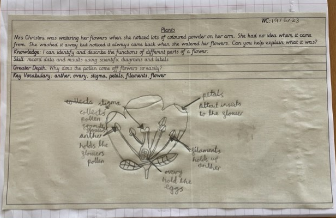 WC:
Plants
Mrs Christou was watering her flowers when she noticed lots of coloured powder on her arm. She had no idea where it came
from. She washed it away but noticed it always came back when she watered her flowers. Can you help explain what it was?
Knowledge: I can identify and describe the functions of different parts of a flower.
Skill: record data and results using scientific diagrams and labels
Greater Depth: Why does the pollen come off flowers so easily?
Key Vocabulary: anther, ovary, stigma, petals, filaments, flower
stigma
collects
pollen
petals
attract insects
to the flower
anther
holds the
flowers
pollen
filaments
hold up
anther
ovary
hold the
eggs